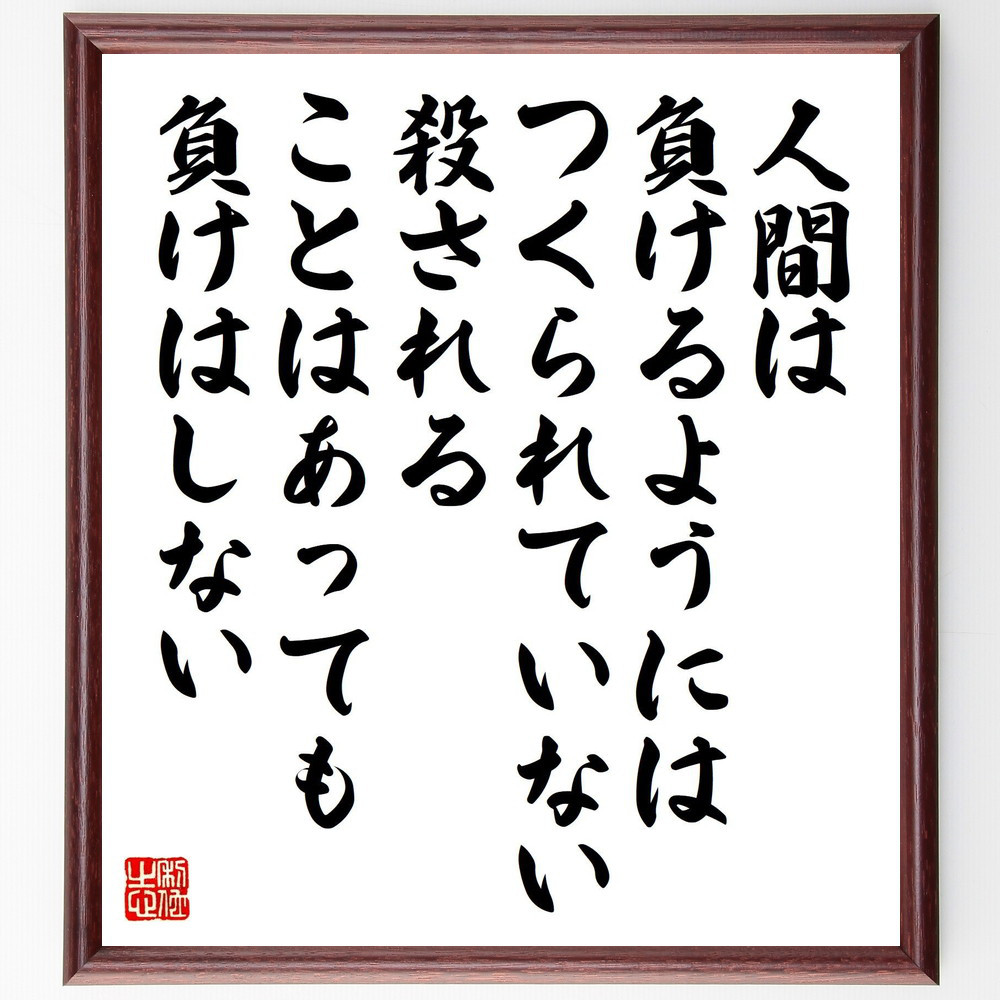 人間は
負けるようには
つくられていない
殺される
ことはあっても
負けはしない